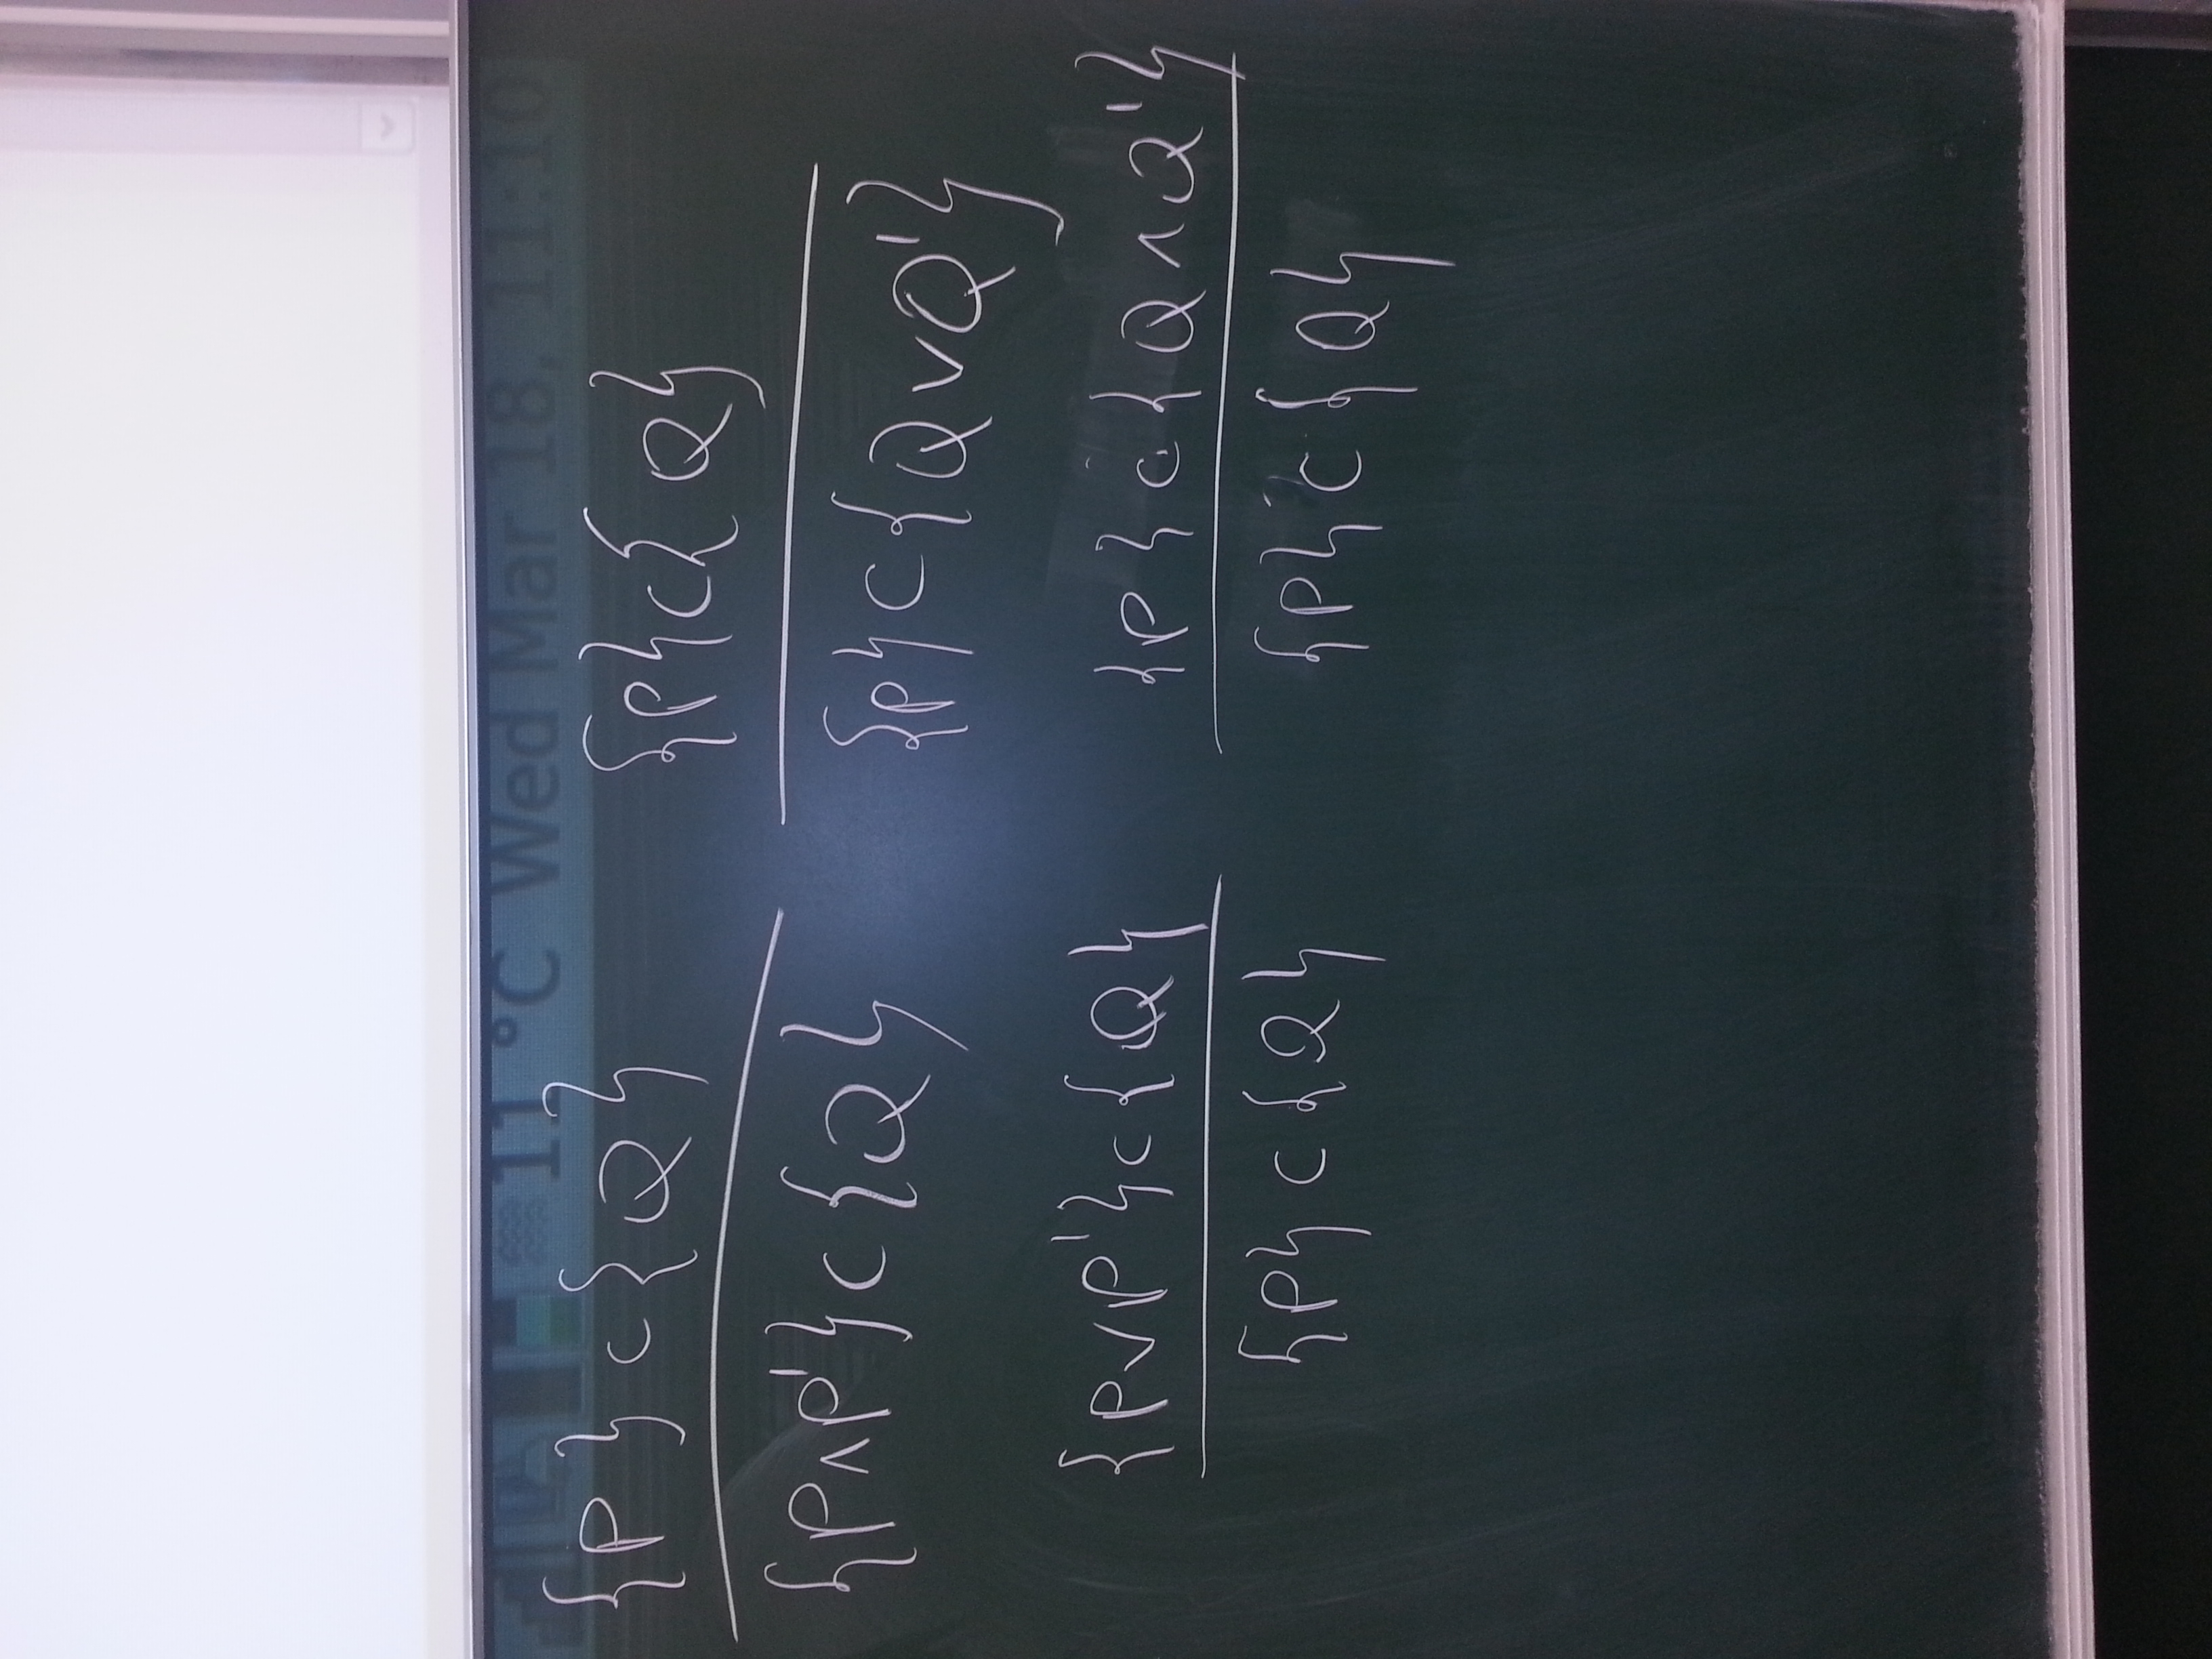 11 °C Wed Mar 18, 11:10
{P} c {Q}
{P∧P'} c {Q}
{P} c {Q}
{P} c {Q∨Q'}
{P∨P'} c {Q}
{P} c {Q}
{P} c {Q∧Q'}
{P} c {Q}